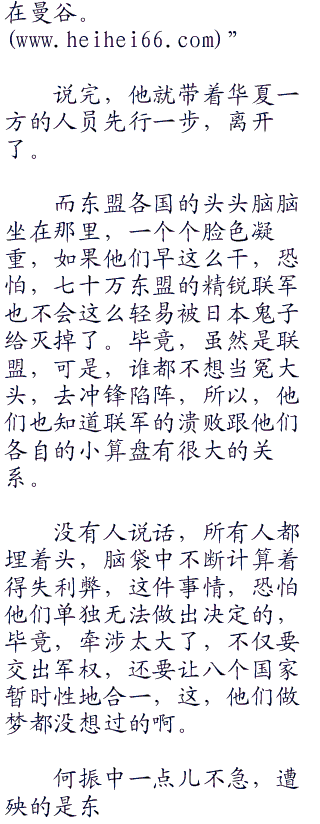 在曼谷。
(www.heihei66.com)”
说完，他就带着华夏一
方的人员先行一步，离开
了。
而东盟各国的头头脑脑
坐在那里，一个个脸色凝
重，如果他们早这么干，恐
怕，七十万东盟的精锐联军
也不会这么轻易被日本鬼子
给灭掉了。毕竟，虽然是联
盟，可是，谁都不想当冤大
头，去冲锋陷阵，所以，他
们也知道联军的溃败跟他们
各自的小算盘有很大的关
系。
没有人说话，所有人都
埋着头，脑袋中不断计算着
得失利弊，这件事情，恐怕
他们单独无法做出决定的，
毕竟，牵涉太大了，不仅要
交出军权，还要让八个国家
暂时性地合一，这，他们做
梦都没想过的啊。
何振中一点儿不急，遭
殃的是东